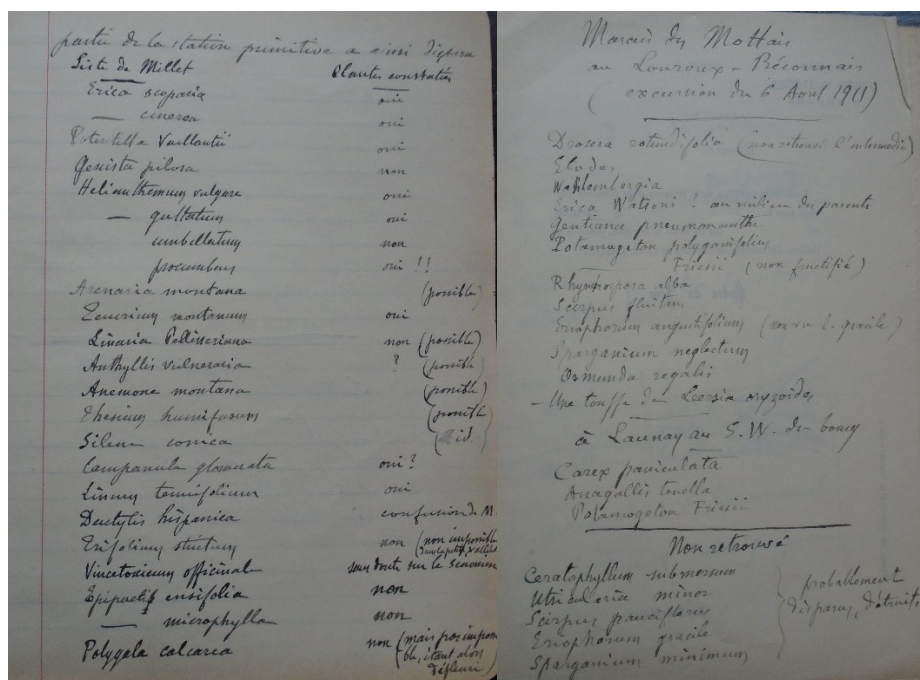 partie de la station primitive a ainsi disparu
Liste de Millet Plantes constatées
Erica scoparia oui
— cinerea oui
Potentilla Vaillantii oui
Genista pilosa non
Helianthemum vulgare oui
— guttatum oui
umbellatum non
procumbens oui !!
Arenaria montana (possible)
Teucrium montanum oui
Linaria Pelliseriana non (possible)
Anthyllis vulneraria ? (possible)
Anemone montana (possible)
Thesium humifusum (possible)
Silene conica (id.)
Campanula glomerata oui ?
Linum tenuifolium oui
Dactylis hispanica confusion de M.
Trifolium strictum non (non impossible
Vincetoxicum officinal sans doute sur le
Epipactis ensifolia non
— microphylla non
Polygala calcarea non (mais pas impossi
ble, étant alors
défleuri)
Marais des Mottais
au Louroux-Béconnais
(excursion du 6 Aout 1911)
Drosera rotundifolia (non retrouvé l'intermedia)
Elodes
Wahlenbergia
Erica Watsoni ? au milieu des parents
Gentiana pneumonanthe
Potamogeton polygonifolius
Friesii (non fructifié)
Rhynchospora alba
Scirpus fluitans
Eriophorum angustifolium (non vu E. gracile)
Sparganium neglectum
Osmunda regalis
- Une touffe de Leersia oryzoides
à Launay au S.W. du bourg
Carex paniculata
Anagallis tenella
Potamogeton Friesii
Non retrouvé
Ceratophyllum submersum
Utricularia minor
Scirpus pauciflorus
Eriophorum gracile
Sparganium minimum
probablement
disparus, détruits